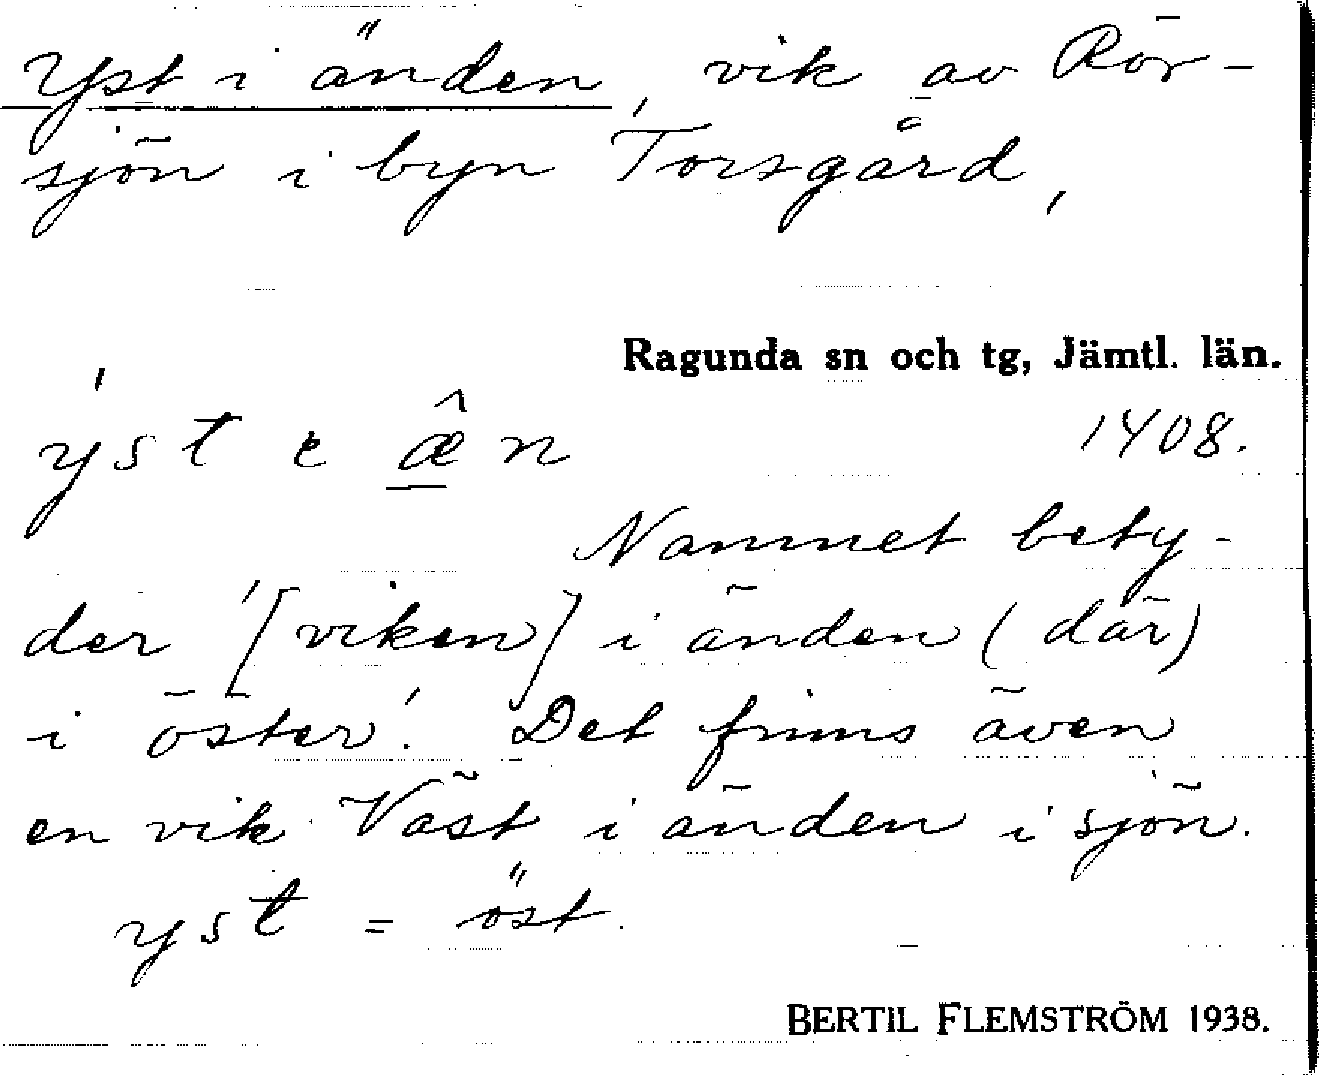 Yst i änden, vik av Rör-
sjön i byn Torsgård,
Ragunda sn och tg, Jämtl. län.
ýst e æ̂n
1408.
Namnet bety-
der '[viken] i änden (där)
i öster'. Det finns även
en vik Väst i änden i sjön.
yst = öst.
BERTIL FLEMSTRÖM 1938.